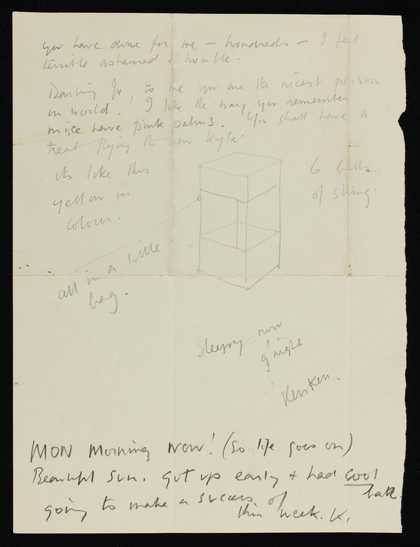 you have done for me - hundreds - I feel
terrible ashamed & humble.
Darling Jo to me you are the nicest person
in world! I like the way you remember
mice have pink palms. You shall have a
treat flying the new kyte.
its like this
yellow in
colour.
6 balls
of string.
all in a little
bag.
Sleepy now
g'night
KenKen.
MON Morning Now! (So life goes on)
Beautiful Sun. Got up early & had cool
bath.
going to make a success of
this week. K.